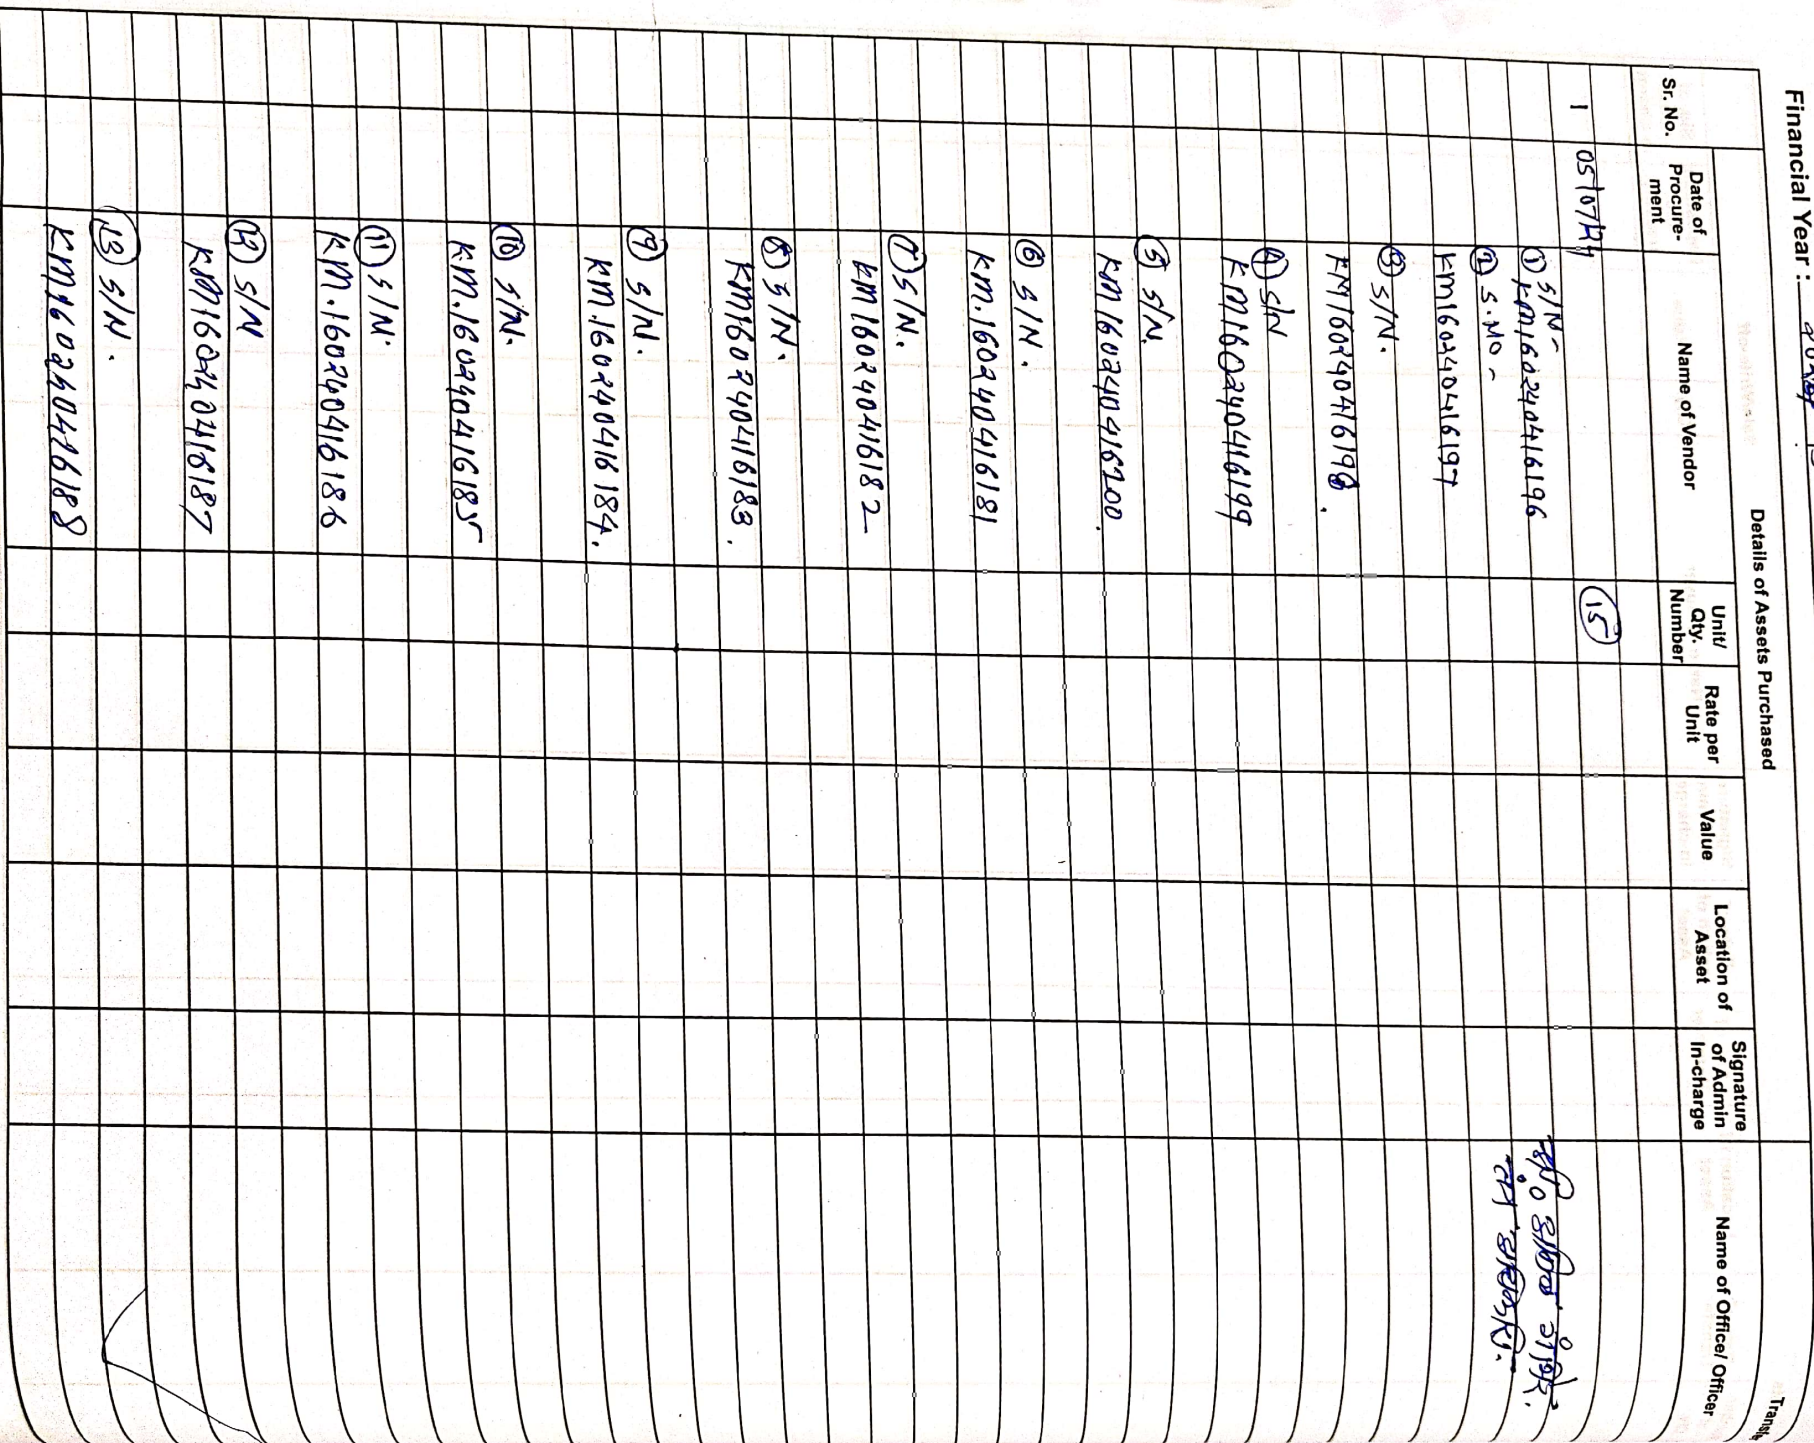 Financial Year :
Details of Assets Purchased
Sr. No.
Date of Procure-ment
Name of Vendor
Unit/ Qty. Number
Rate per Unit
Value
Location of Asset
Signature of Admin In-charge
Name of Office/ Officer
1 05/07/24
15
① S/N-
KM160240416196
② S.NO-
KM160240416197
③ S/N.
KM160240416198.
④ S/N
KM160240416199
⑤ S/N.
KM160240416200.
⑥ S/N.
KM.160240416181
⑦ S/N.
KM160240416182
⑧ S/N.
KM160240416183.
⑨ S/N.
KM.160240416184.
⑩ S/N.
KM.160240416185
⑪ S/N.
KM.160240416186
⑫ S/N
KM160240416187
⑬ S/N.
KM160240416188